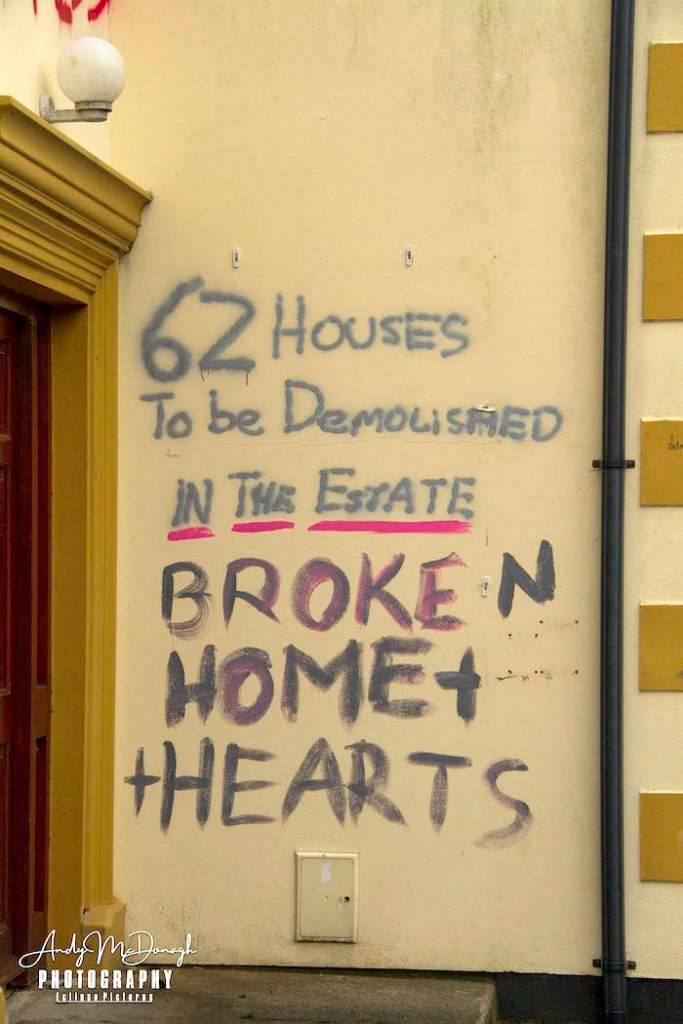 62 HOUSES
To be DEMOLISHED
IN THE ESTATE
BROKEN
HOME+
+HEARTS
Andy McDonagh
PHOTOGRAPHY
Eclipse Pictures